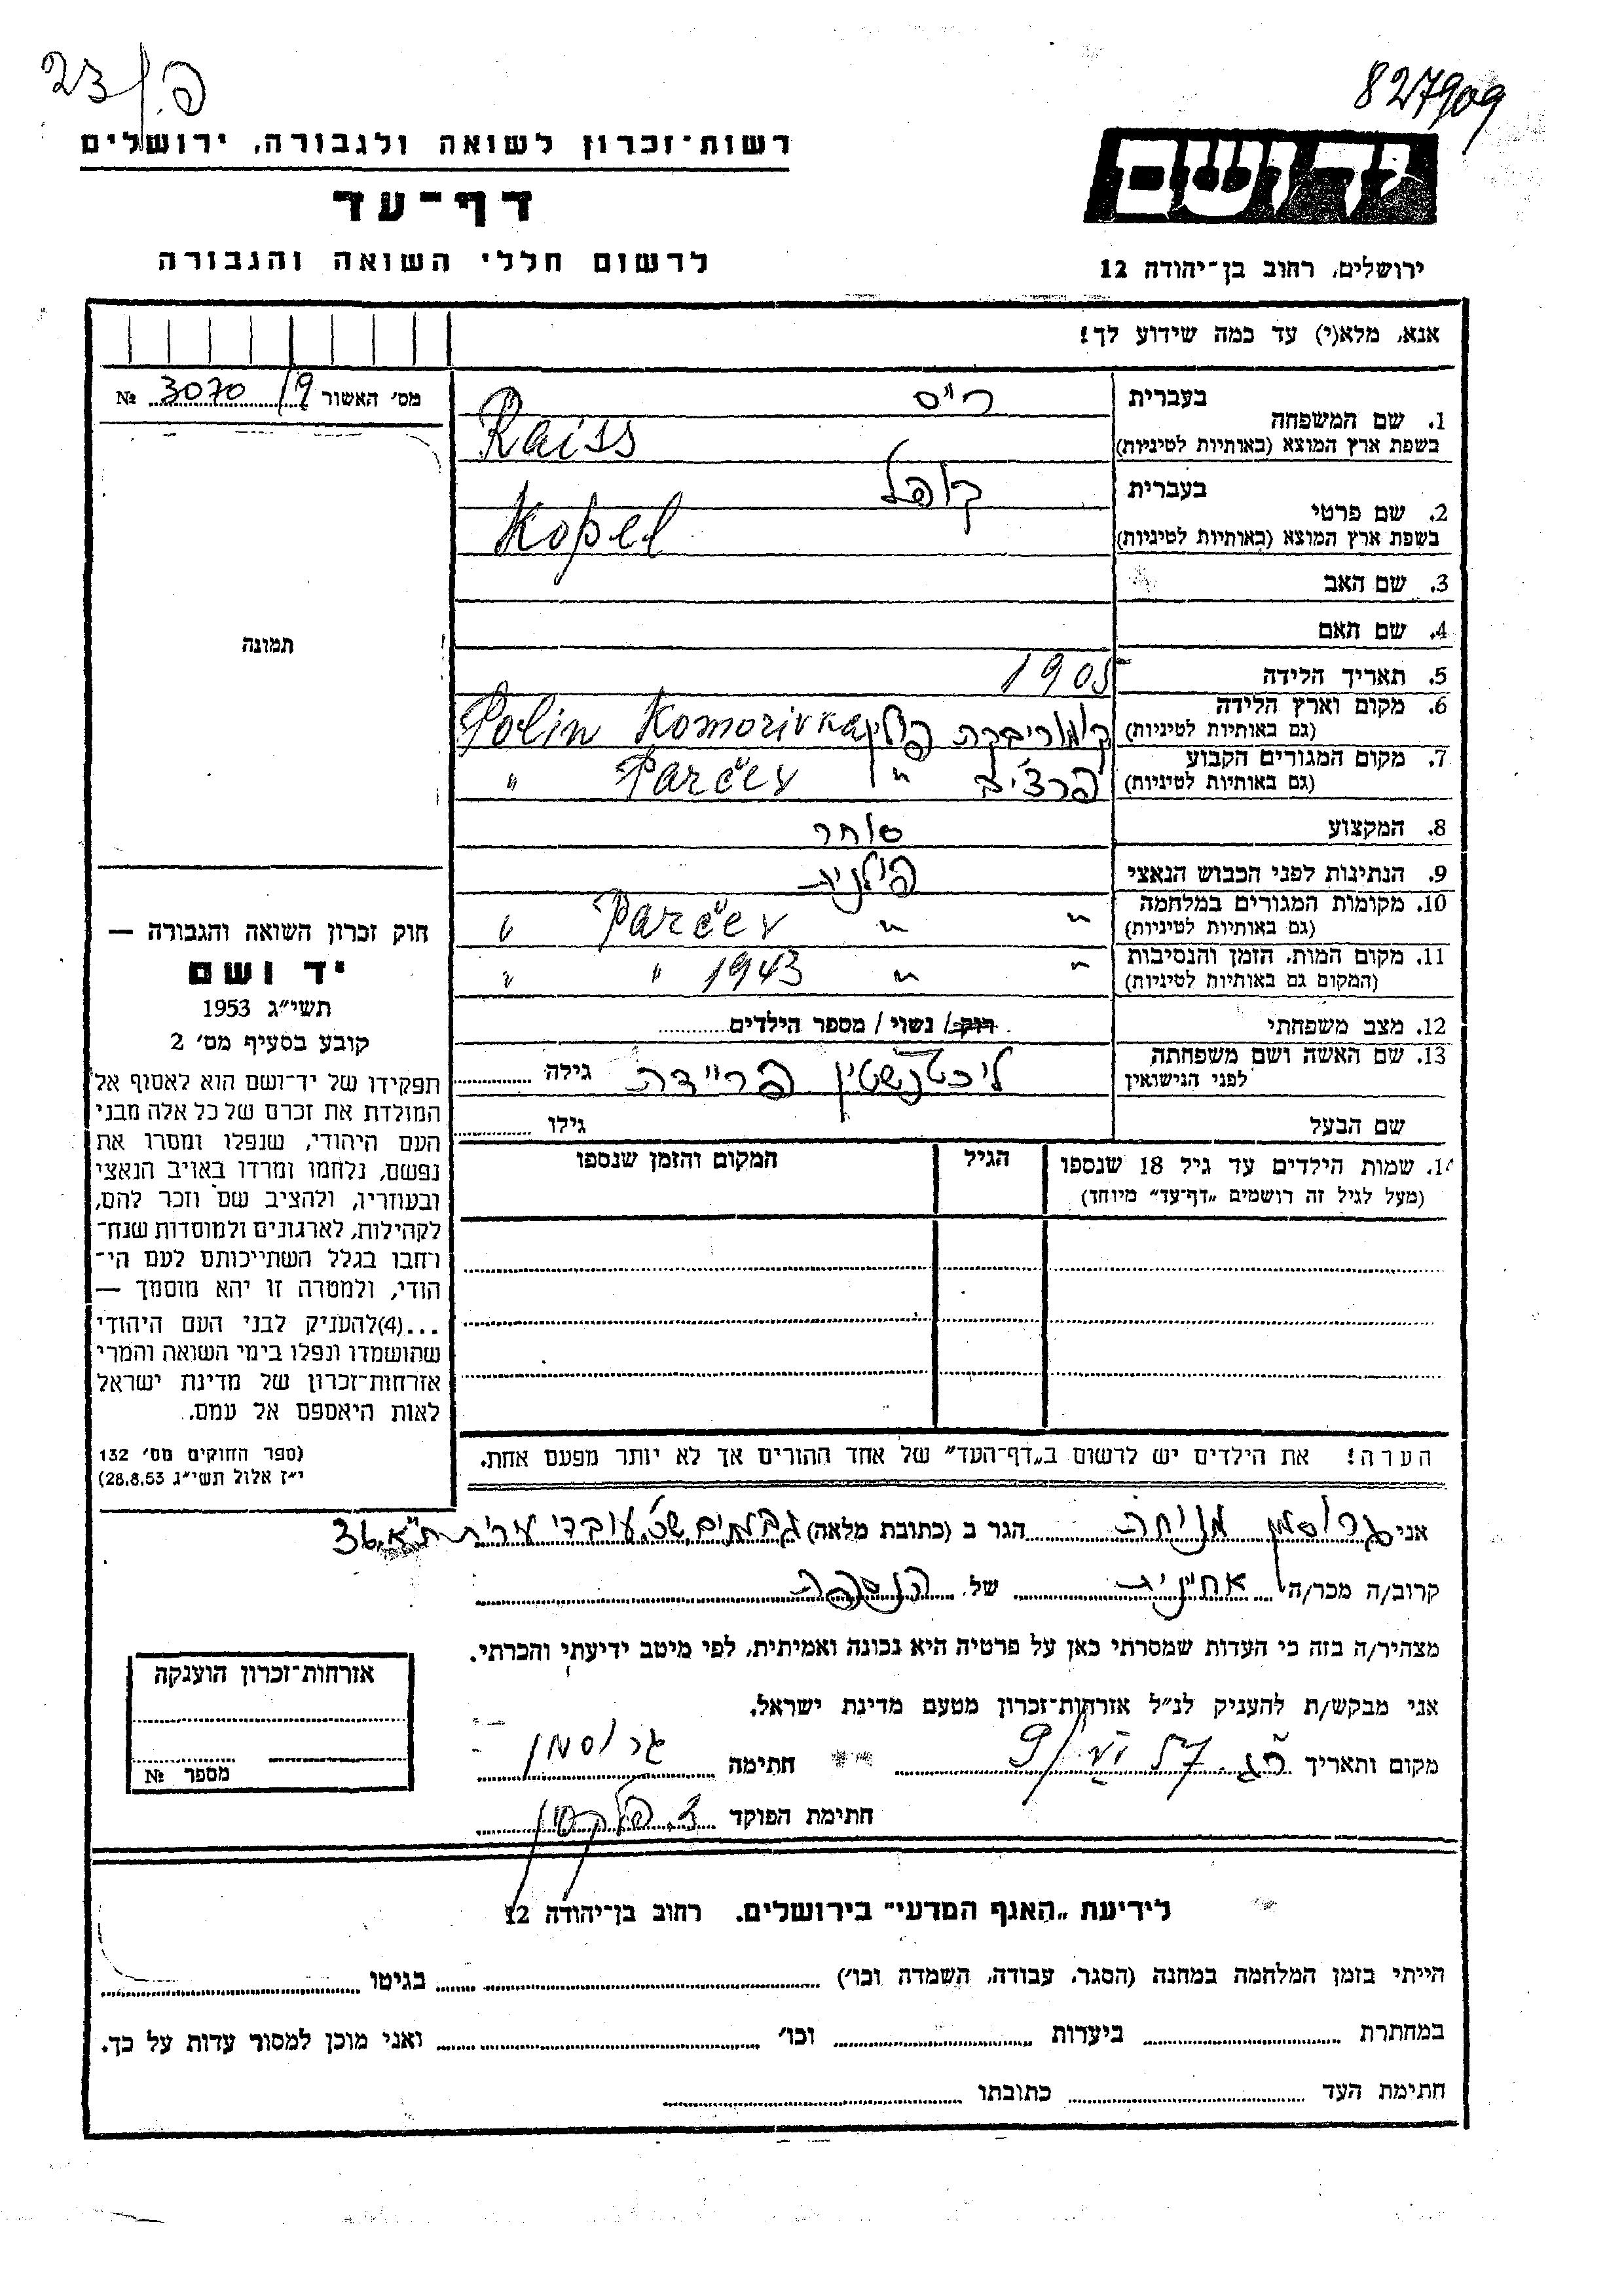 23 פ.
827909
רשות־זכרון לשואה ולגבורה, ירושלים
דף־עד
לרשום חללי השואה והגבורה
יד ושם
ירושלים, רחוב בן־יהודה 12
אנא, מלא(י) עד כמה שידוע לך!
מס׳ האשור 3070/9 №
תמונה
1. שם המשפחה
בעברית רייס
בשפת ארץ המוצא (באותיות לטיניות) Raiss
2. שם פרטי
בעברית קופל
בשפת ארץ המוצא (באותיות לטיניות) Kopel
3. שם האב
4. שם האם
5. תאריך הלידה 1905
6. מקום וארץ הלידה קומריבקה פולין Komorivka Polin
(גם באותיות לטיניות)
7. מקום המגורים הקבוע פרצ׳יב " Parčev "
(גם באותיות לטיניות)
8. המקצוע סוחר
9. הנתינות לפני הכבוש הנאצי פולנית
10. מקומות המגורים במלחמה " " Parčev "
(גם באותיות לטיניות)
11. מקום המות, הזמן והנסיבות " " 1943 " "
(המקום גם באותיות לטיניות)
12. מצב משפחתי רוק / נשוי / מספר הילדים
13. שם האשה ושם משפחתה ליכטנשטין פריידה גילה
לפני הנישואין
שם הבעל גילו
14. שמות הילדים עד גיל 18 שנספו הגיל המקום והזמן שנספו
(מעל לגיל זה רושמים „דף־עד״ מיוחד)
הערה! את הילדים יש לרשום ב„דף־העד״ של אחד ההורים אך לא יותר מפעם אחת.
חוק זכרון השואה והגבורה —
יד ושם
תשי״ג 1953
קובע בסעיף מס׳ 2
תפקידו של יד־ושם הוא לאסוף אל
המולדת את זכרם של כל אלה מבני
העם היהודי, שנפלו ומסרו את
נפשם, נלחמו ומרדו באויב הנאצי
ובעוזריו, ולהציב שם וזכר להם,
לקהילות, לארגונים ולמוסדות שנח־
רחבו בגלל השתייכותם לעם הי־
הודי, ולמטרה זו יהא מוסמך —
...(4)להעניק לבני העם היהודי
שהושמדו ונפלו בימי השואה והמרי
אזרחות־זכרון של מדינת ישראל
לאות היאספם אל עמם.
(ספר החוקים מס׳ 132
י״ז אלול תשי״ג 28.8.53)
אני גרוסמן מניחה הגר ב (כתובת מלאה) גבעתיים, שכ. עובדי עירית ת״א, 36
קרוב/ה מכר/ה אחינית של הנספה
מצהיר/ה בזה כי העדות שמסרתי כאן על פרטיה היא נכונה ואמיתית, לפי מיטב ידיעתי והכרתי.
אני מבקש/ת להעניק לנ״ל אזרחות־זכרון מטעם מדינת ישראל.
מקום ותאריך ר״ג 9/VI 57 חתימה גרוסמן
חתימת הפוקד
אזרחות־זכרון הוענקה
מספר №
לידיעת „האגף המדעי״ בירושלים, רחוב בן־יהודה 12
הייתי בזמן המלחמה במחנה (הסגר, עבודה, השמדה וכו׳) בגיטו
במחתרת ביערות וכו׳ ואני מוכן למסור עדות על כך.
חתימת העד כתובתו